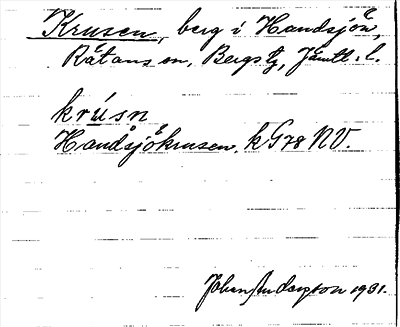 Krusen, berg i Handsjön,
Rätans sn, Bergs tg, Jämtl. l.
krúsn
Handsjökrusen. k G78 NV.
Johan Anderzson 1931.